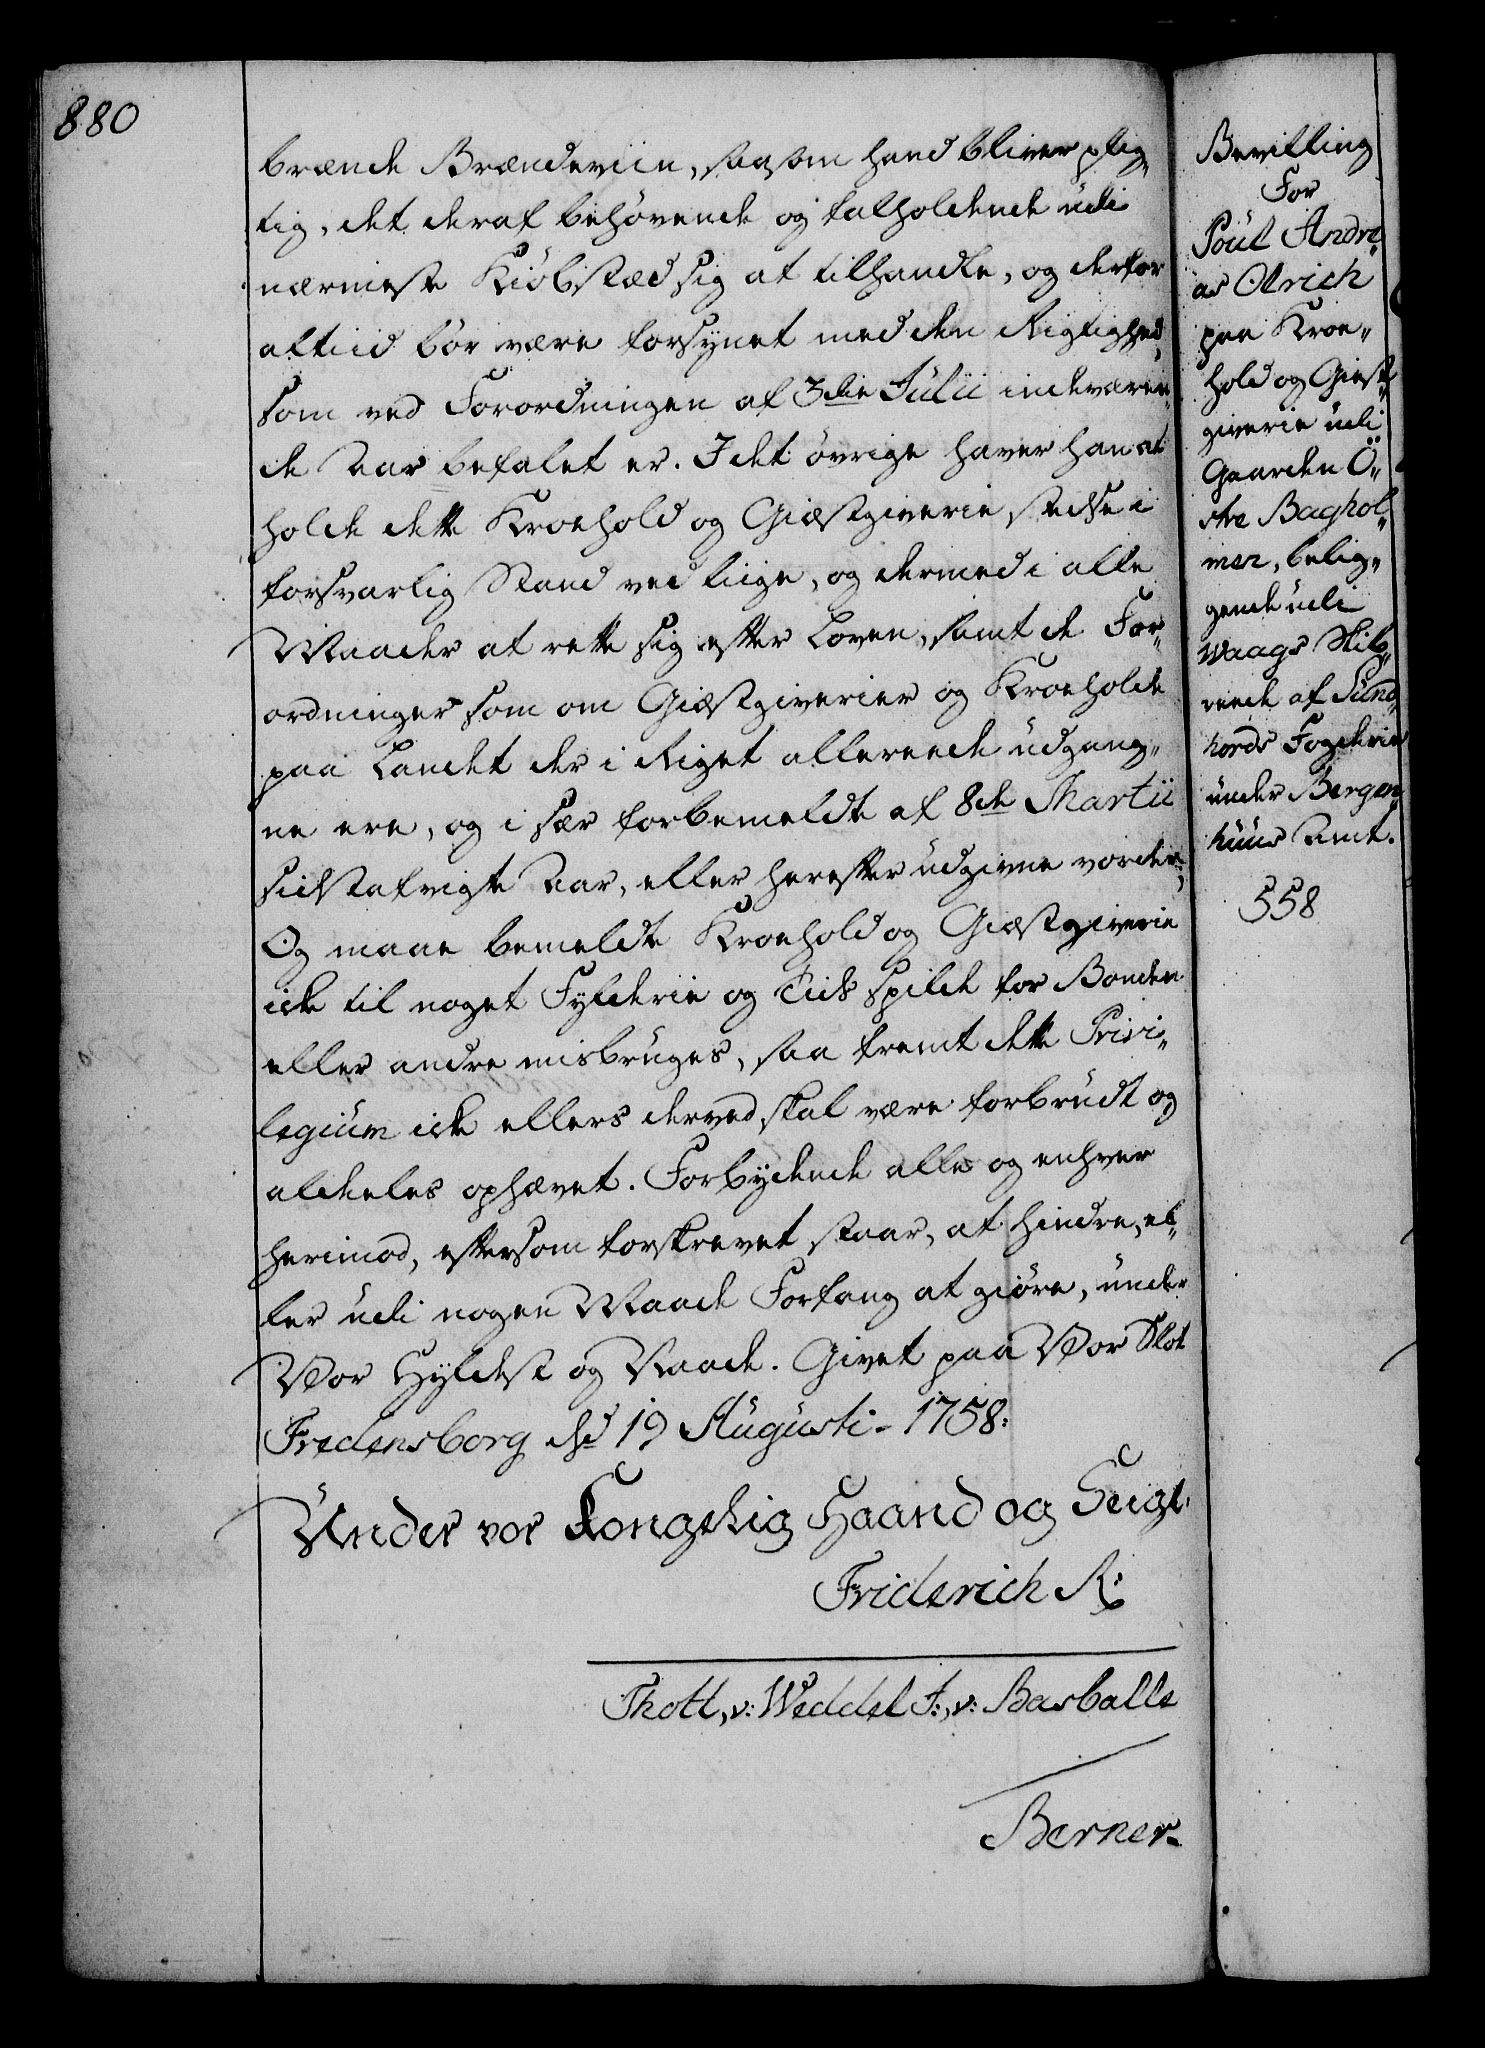 880
brænde Brændeviin, saasom hand bliver plig„
tig, det deraf behøvende og falholdende udi
nærmeste Kiøbstæd sig at tilhandle, og derfor
altiid bør være forsynet med den Rigtighed,
som ved Forordningen af 3die Julii indeværen„
de Aar befalet er. I det øvrige haver han at
holde dette Kroehold og Giæstgiverie stedse i
forsvarlig Stand ved liige, og dermed i alle
Maader at rette sig efter Loven, samt de For„
ordninger som om Giæstgiverier og Kroeholde
paa Landet der i Riget allereede udgang„
ne ere, og i sær forbemeldte af 8de Martii
sidstafvigte Aar, eller herefter udgivne vorder;
Og maae bemeldte Kroehold og Giæstgiverie
icke til noget Fylderie og Tids spilde for Bonden
eller andre misbruges, saa fremt dette Privi„
legium icke ellers derved skal være forbrudt og
aldeles ophævet. Forbydende alle og enhver
herimod, eftersom forskrevet staar, at hindre, el„
ler udi nogen Maade Forfang at giøre, under
Vor Hyldest og Naade. Givet paa Vor Slot
Fredensborg dd 19 Augusti - 1758:
Under vor Kongelig Haand og Seigl.
Friderich R:
Thott, v: Weddel F:, v: Basballe
Berner.
Bevilling
For
Poul Andre„
as Olrich
paa Kroe„
hold og Giest„
giverie udi
Gaarden Ö„
stre Baghol„
mer, belig„
gende udi
Waags Skib„
reede af Sund„
hords Fogderie
under Bergen„
huus Amt.
558